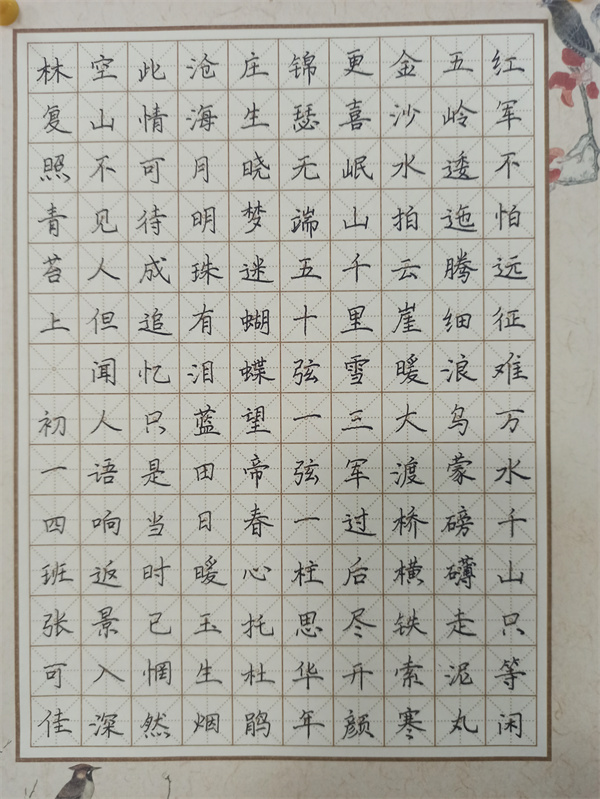 红军不怕远征难万水千山只等闲
五岭逶迤腾细浪乌蒙磅礴走泥丸
金沙水拍云崖暖大渡桥横铁索寒
更喜岷山千里雪三军过后尽开颜
锦瑟无端五十弦一弦一柱思华年
庄生晓梦迷蝴蝶望帝春心托杜鹃
沧海月明珠有泪蓝田日暖玉生烟
此情可待成追忆只是当时已惘然
空山不见人但闻人语响返景入深
林复照青苔上 初一四班张可佳